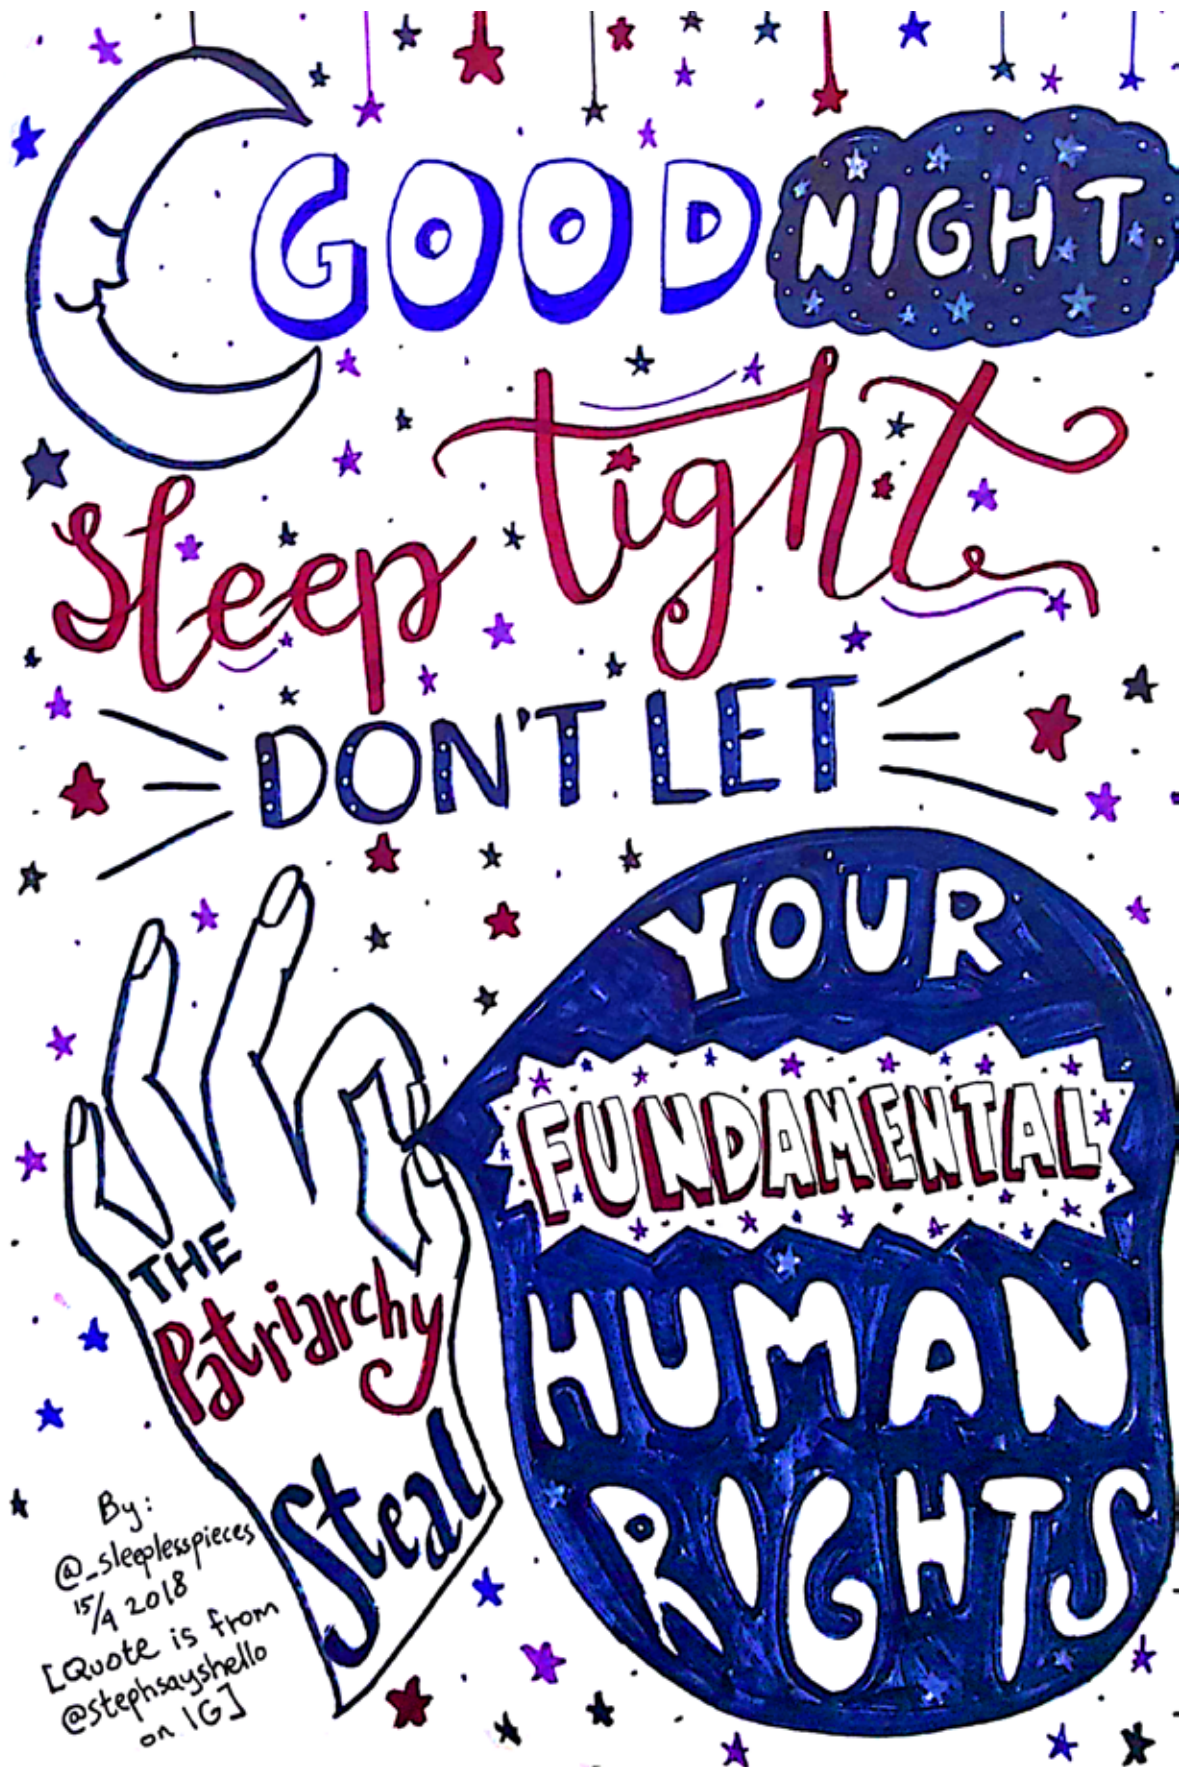 GOOD NIGHT
Sleep tight
DON'T LET
THE
Patriarchy
Steal
YOUR
FUNDAMENTAL
HUMAN
RIGHTS
By:
@_sleeplesspieces
15/4 2018
[Quote is from
@stephsayshello
on IG]